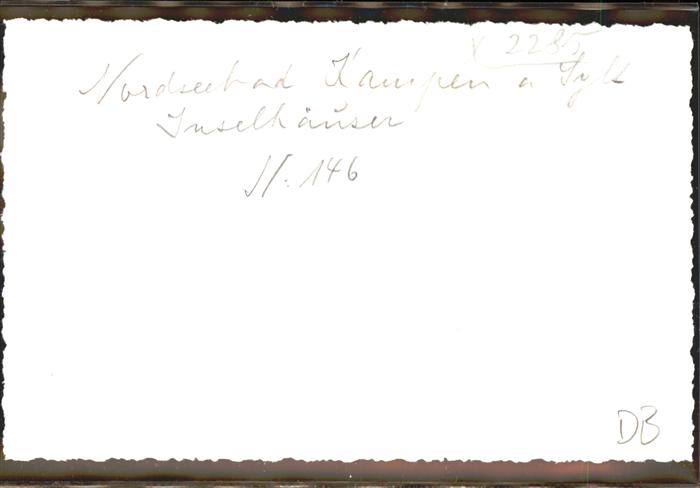 x 2235
Nordseebad Kampen a Sylt
Inselhäuser
N. 146
DB